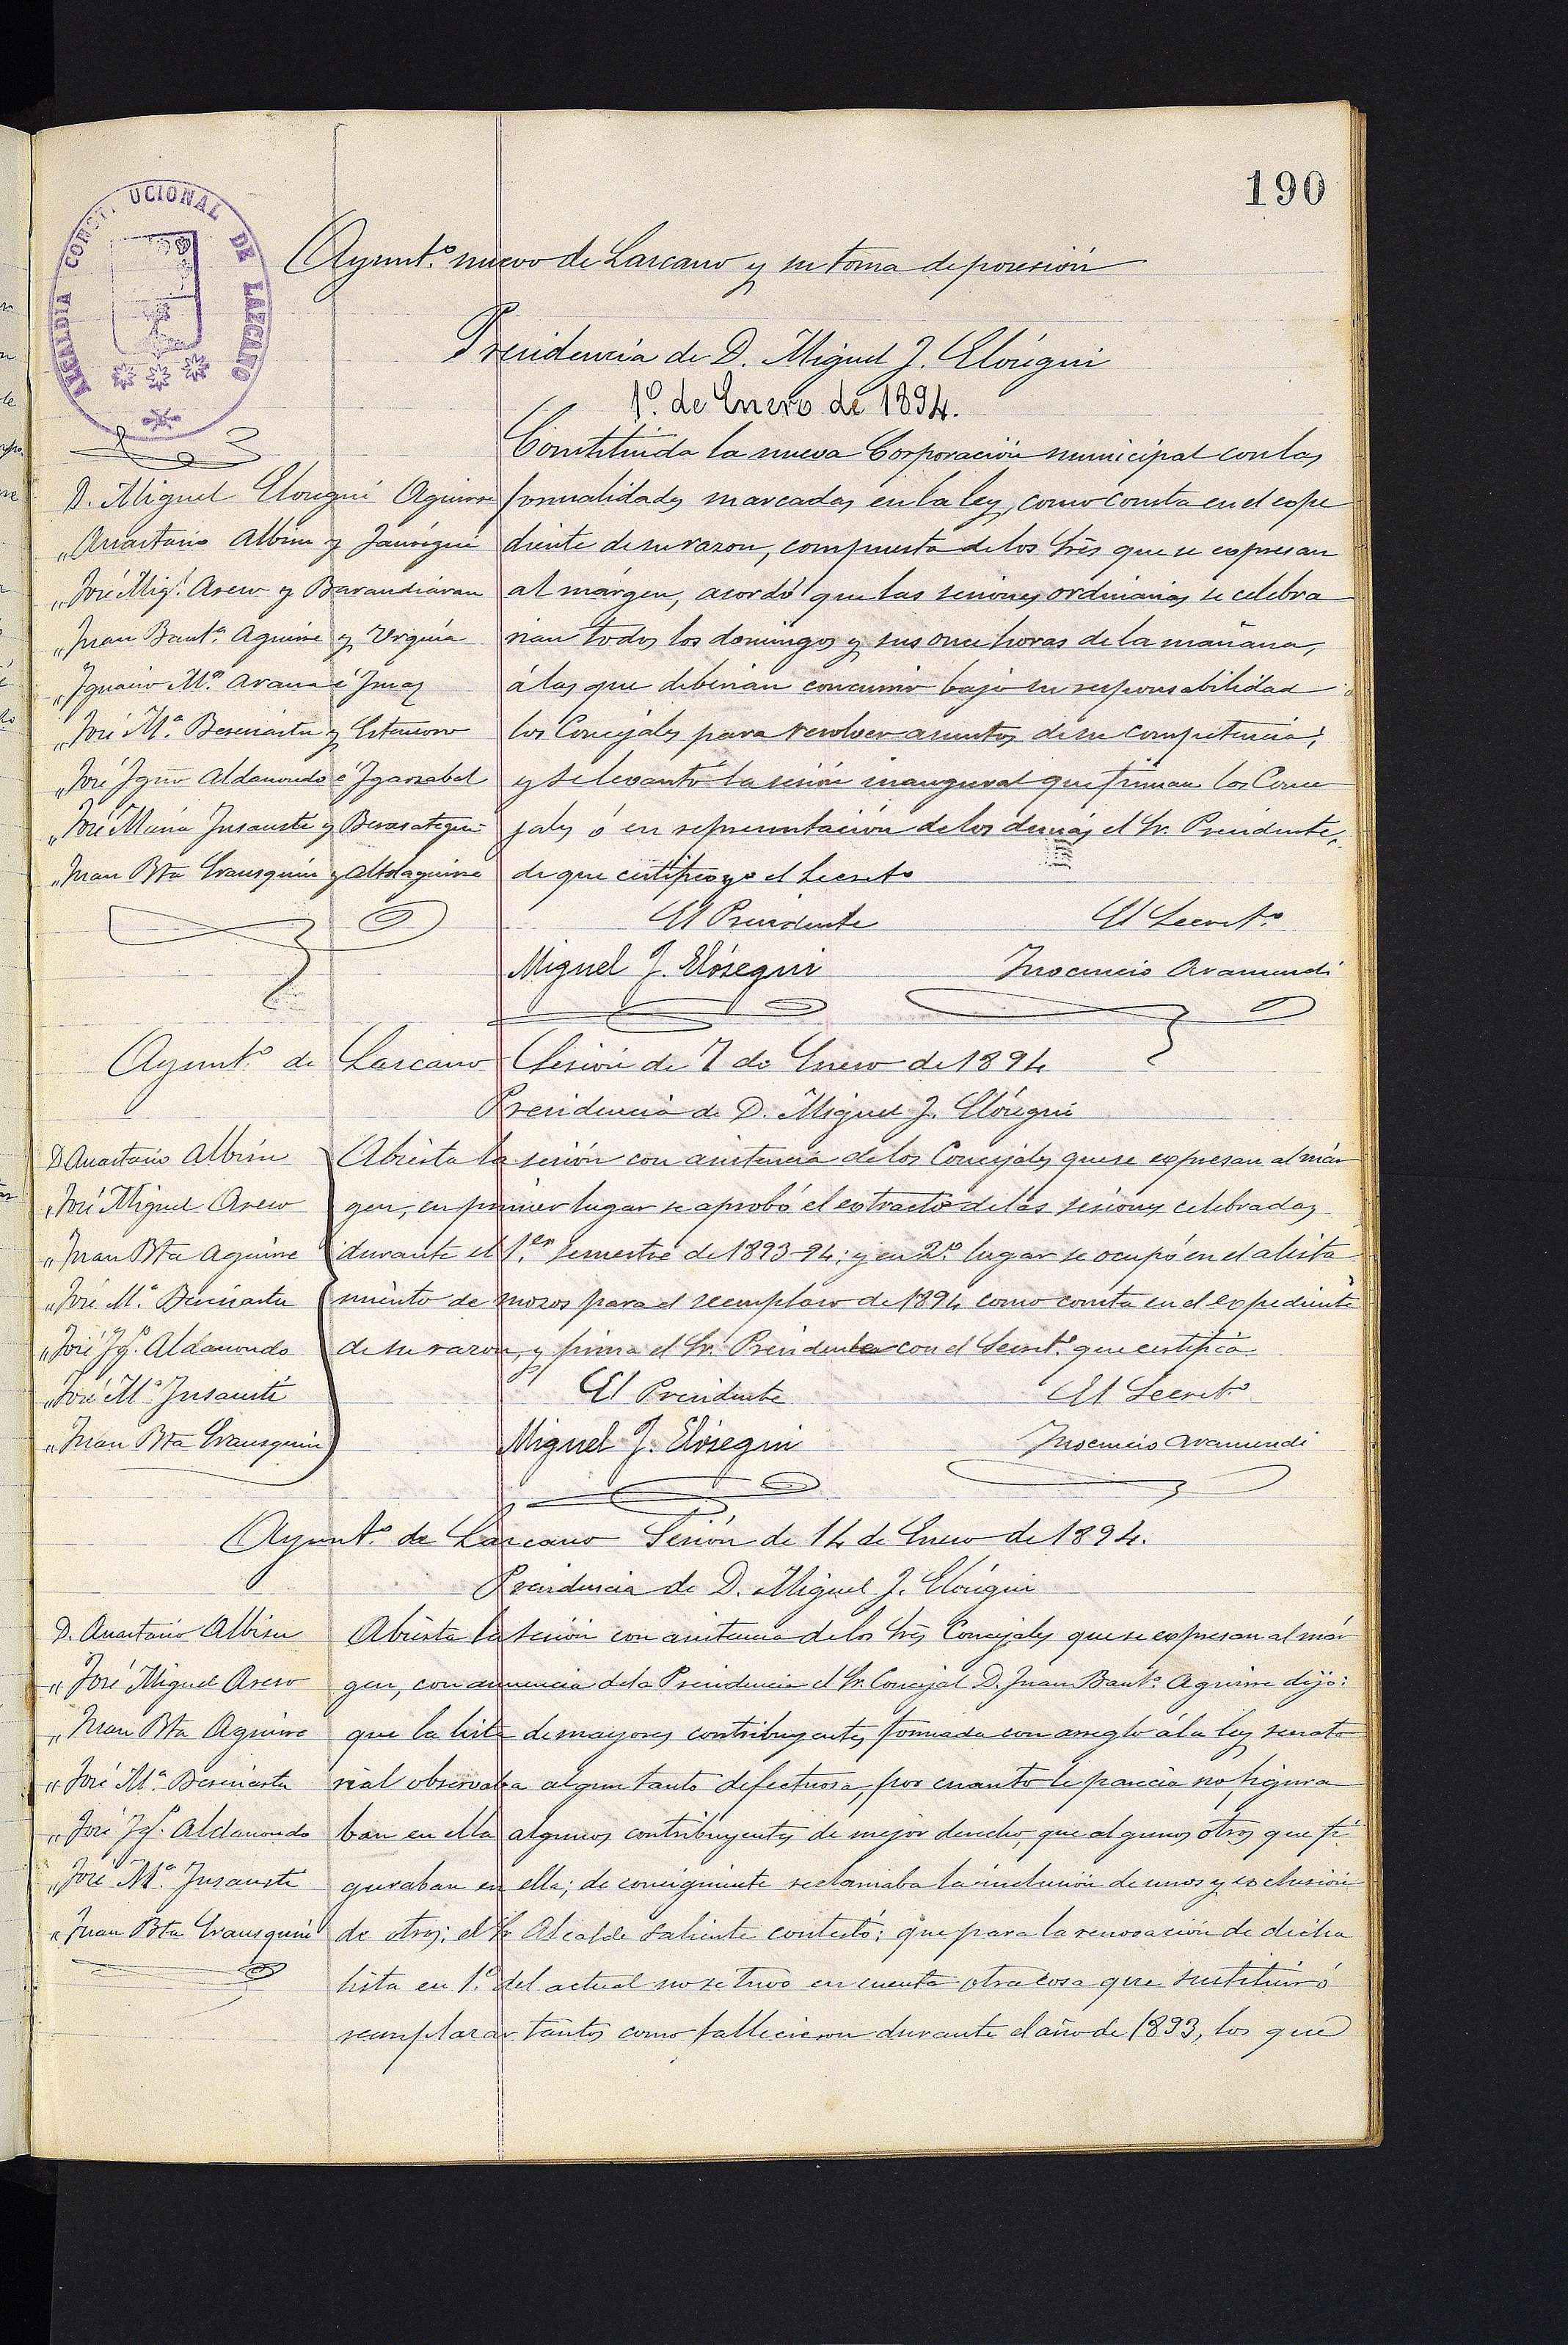 190
ALCALDIA CONST. UCIONAL DE LAZCANO
Ayunt.º nuevo de Lazcano y su toma de posesión
Presidencia de D. Miguel J. Elósegui
1º. de Enero de 1894.
D. Miguel Elósegui Aguirre
„ Anastasio Albisu y Jauregui
„ José Mig.l Asero y Barandiaran
„ Juan Baut.ª Aguirre y Urquia
„ Ignacio M.ª Arana é Imaz
„ José M.ª Beseiartu y
„ José Igno Aldanondo é Igarzabal
„ José Maria Insausti y Berasategui
„ Juan Bta Erausquin y Altolaguirre
Constituida la nueva Corporación municipal con las
formalidades marcadas en la ley, como consta en el expe
diente de su razon, compuesta de los Sres que se expresan
al márgen, acordó que las sesiones ordinarias se celebra
rian todos los domingos y sus once horas de la mañana,
á las que deberian concurrir bajo su responsabilidad
los Concejales para resolver asuntos de su competencia;
y se levantó la sesión inaugural que firman los Conce
jales ó en representación de los demás el Sr. Presidente,
de que certifico yo el Secreto
El Presidente El Secret.º
Miguel J. Elósegui Inocencio Aramendi
Ayunt.º de Lazcano Sesión de 7 de Enero de 1894
Presidencia de D. Miguel J. Elósegui
D Anastasio Albisu
„ José Miguel Asero
„ Juan Bta Aguirre
„ José M.ª Beseiartu
„ José Ig.º Aldanondo
„ José M.ª Insausti
„ Juan Bta Erausquin
Abierta la sesión con asistencia de los Concejales que se expresan al már
gen, en primer lugar se aprobó el extracto de las sesiones celebradas
durante el 1.er semestre de 1893-94; y en 2.º lugar se ocupó en el alista
miento de mozos para el reemplazo de 1894 como consta en el expediente
de su razon, y firma el Sr. Presidente con el Secret.º que certifica
El Presidente El Secretº
Miguel J. Elósegui Inocencio Aramendi
Ayunt.º de Lazcano Sesión de 14 de Enero de 1894.
Presidencia de D. Miguel J. Elósegui
D. Anastasio Albisu
„ José Miguel Asero
„ Juan Bta Aguirre
„ José M.ª Beseiartu
„ José Ig.º Aldanondo
„ José M.ª Insausti
„ Juan Bta Erausquin
Abierta la sesión con asistencia de los Sres Concejales que se expresan al már
gen, con anuencia de la Presidencia el Sr. Concejal D. Juan Baut.ª Aguirre dijo:
que la lista de mayores contribuyentes formada con arreglo á la ley senato
rial observaba algun tanto defectuosa, por cuanto le parecia no figura
ban en ella algunos contribuyentes de mejor derecho, que algunos otros que fi
guraban en ella; de consiguiente reclamaba la inclusión de unos y exclusión
de otros; el Sr Alcalde saliente contestó: que para la renovación de dicha
lista en 1.º del actual no se tuvo en cuenta otra cosa que sustituir ó
reemplazar tantos como fallecieron durante el año de 1893, los que